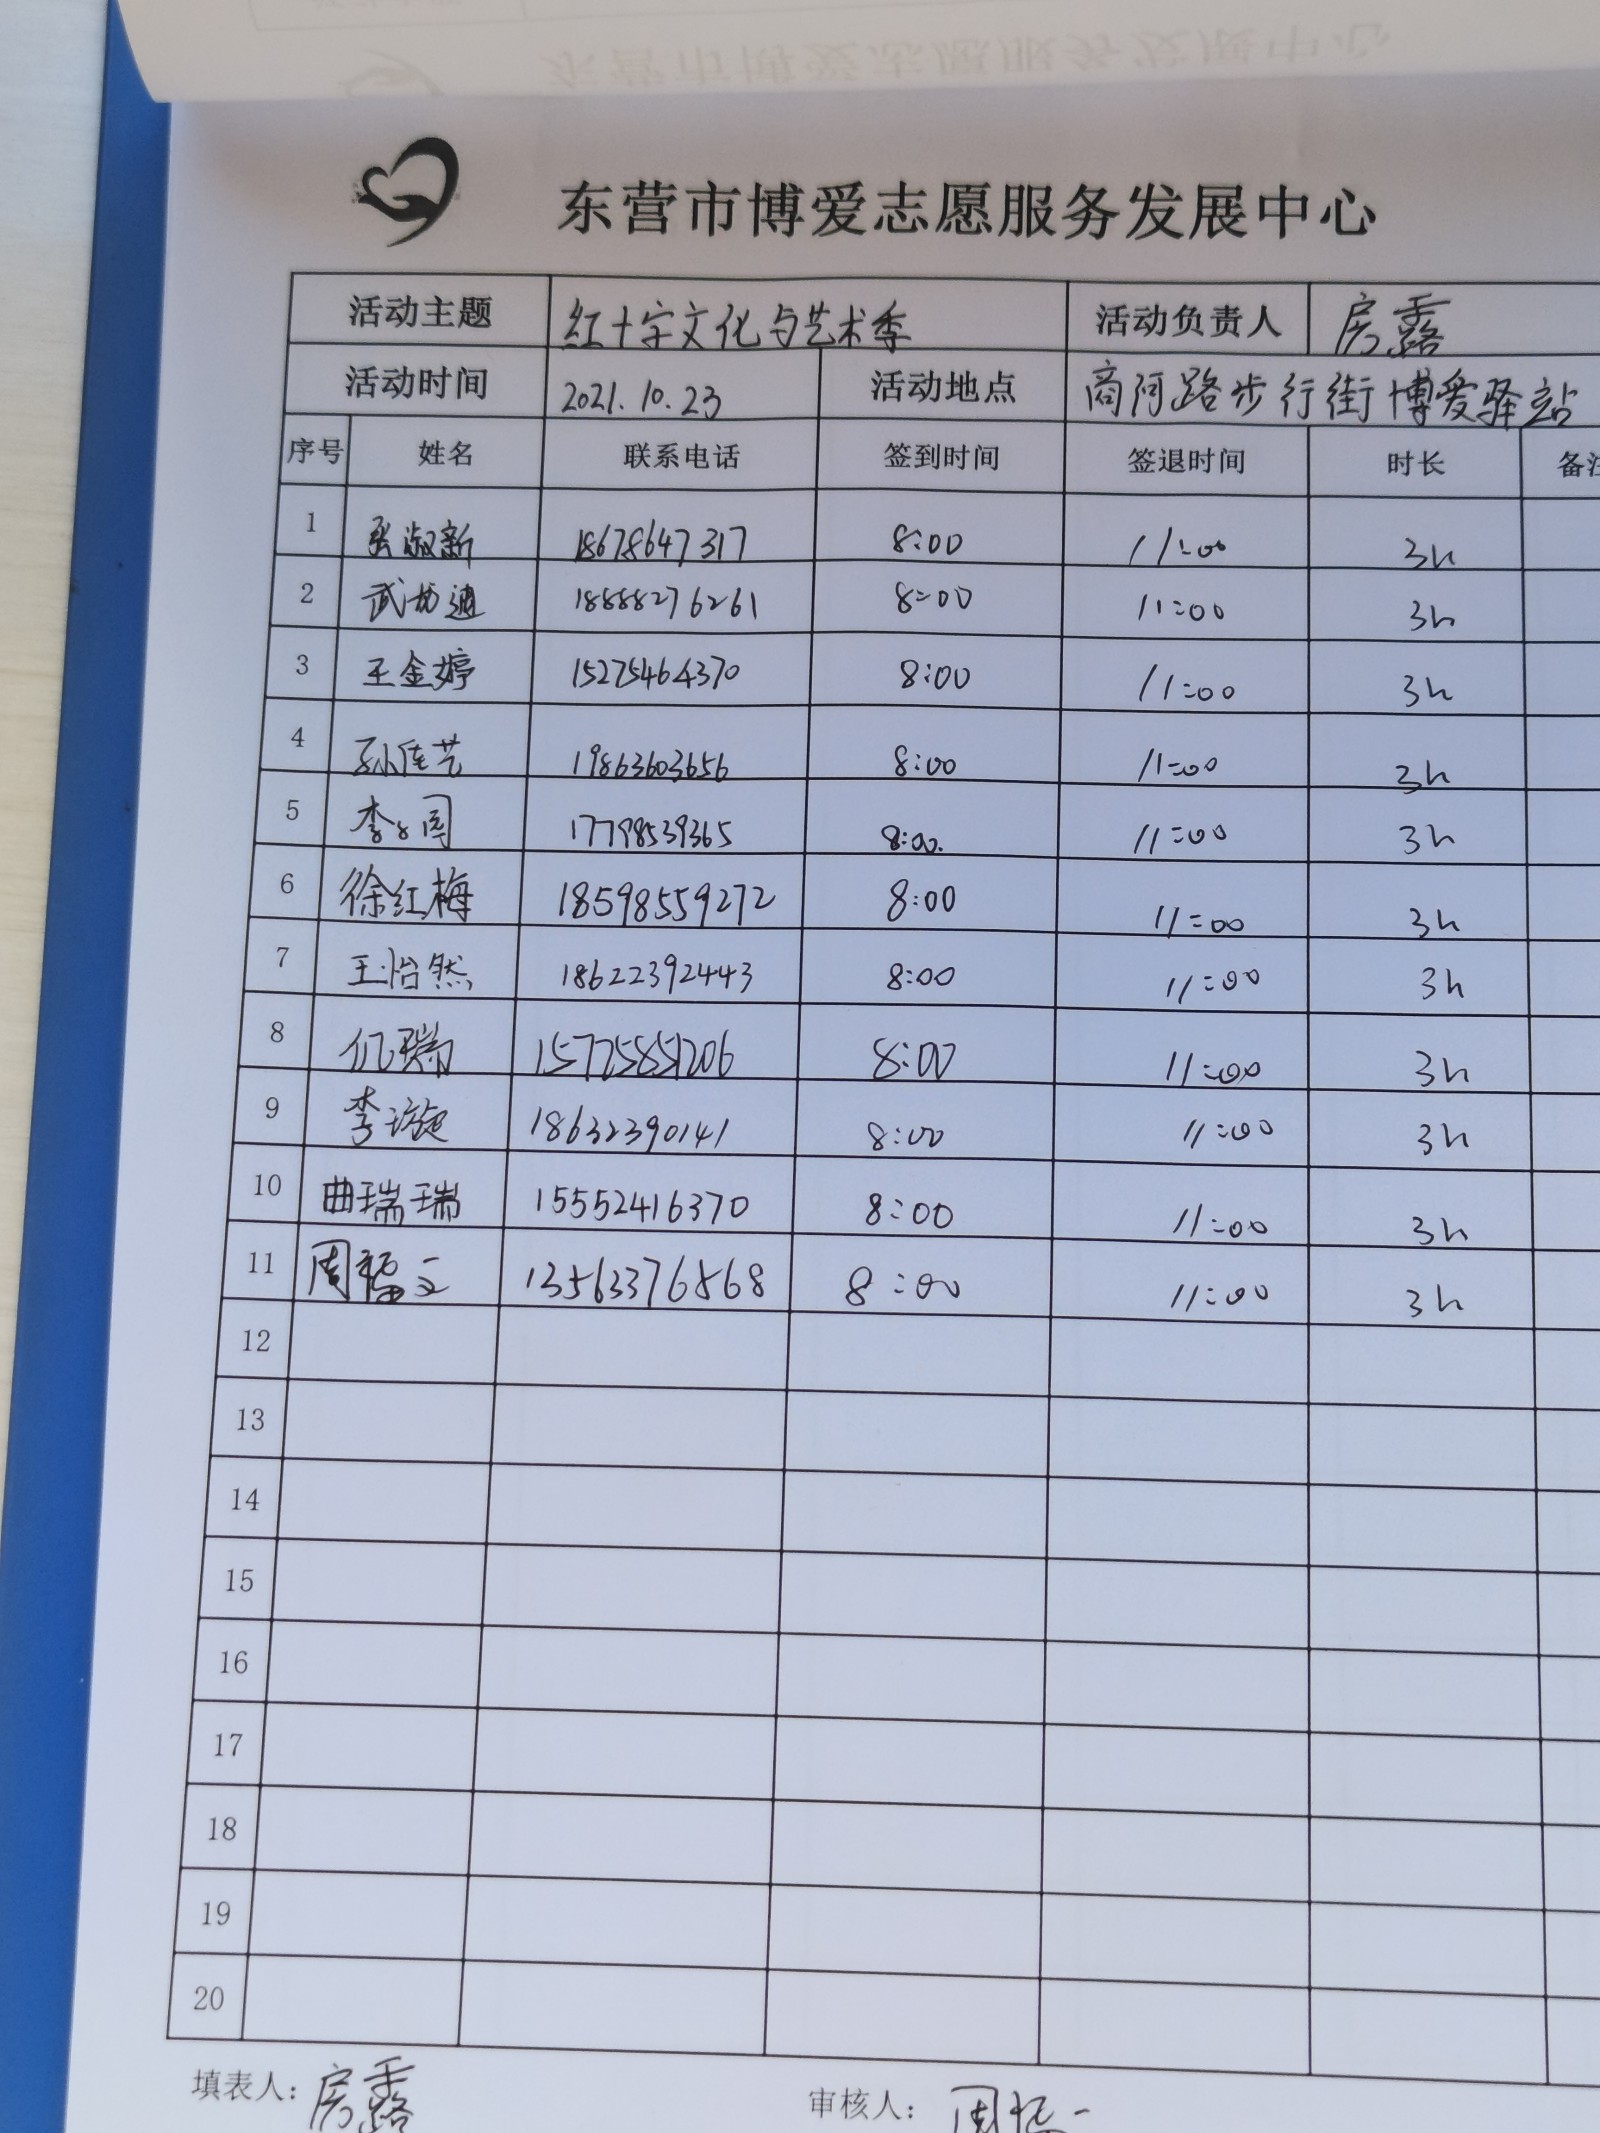 东营市博爱志愿服务发展中心
活动主题 红十字文化与艺术季 活动负责人 房露
活动时间 2021.10.23 活动地点 商河路步行街博爱驿站
序号 姓名 联系电话 签到时间 签退时间 时长 备注
1 张淑新 18678647317 8:00 11:00 3h
2 18888276261 8:00 11:00 3h
3 王金婷 15275464370 8:00 11:00 3h
4 孙佳艺 19863603656 8:00 11:00 3h
5 17798539365 8:00 11:00 3h
6 徐红梅 18598559272 8:00 11:00 3h
7 王怡然 18622392443 8:00 11:00 3h
8 15725851206 8:00 11:00 3h
9 李璇 18632390141 8:00 11:00 3h
10 曲瑞瑞 15552416370 8:00 11:00 3h
11 13563376868 8:00 11:00 3h
12
13
14
15
16
17
18
19
20
填表人：房露 审核人：